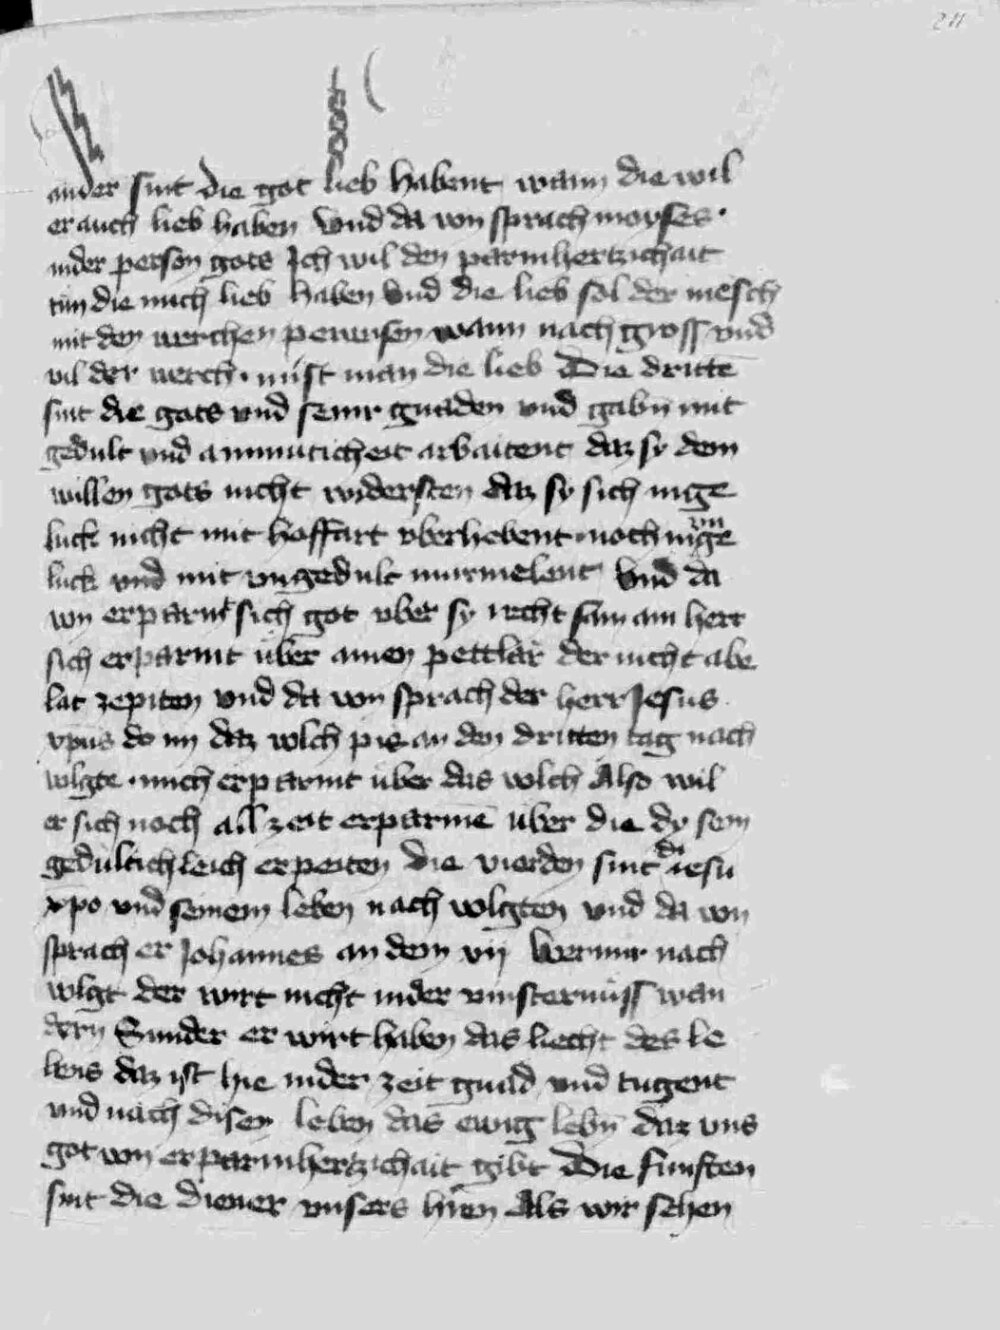 211
ander sint die got lieb habent wann die wil
er auch lieb haben Vnd da von sprach moyses
inder person gots Ich wil den parmhertzichait
tun die mich lieb haben Vnd die lieb sol der mēsch
mit den werchen peweisen wann nach gross vnd
vil der werch mist man die lieb Die dritten
sint die gots vnd seinr gnaden vnd gabn̄ mit
gedult vnd ammuticheit arbaitent daz sy dem
willen gots nicht widersten daz sy sich inge
luck nicht mit hoffart vberhebent noch in vn ge
luck vnd mit vngedult murmelent Vnd da
von erparmt sich got vber sy recht sam ain herr
sich erparmt über ainen pettlär der nicht abe
lat zepiten vnd da von sprach der herr Jesus
xp̄us do im daz volch pis an den dritten tag nach
volgte mich erparmt über das volch Also wil
er sich noch all zeit erparmē über die dy sein
gedultichleich erpeiten die vierden sint di iesu
xp̄o vnd seinem leben nach volgten vnd da von
sprach er Johannes an dem vij Wer mir nach
volgt der wirt nicht inder vinsternüss wan
dern Sunder er wirt haben das liecht des le
bens daz ist hie inder zeit gnad vnd tugent
vnd nach disen leben das ewig lebn̄ daz vns
got von erparmhertzichait gibt Die funften
sint die diener vnsers hr̄en Als wir sehen